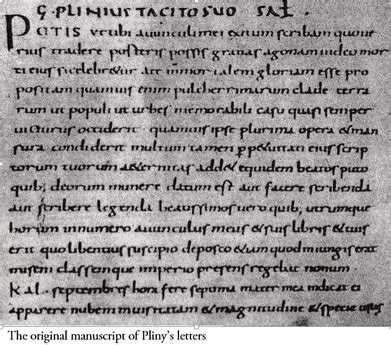 C·PLINIUS TACITO SUO SAL̄.
PETIS ut tibi auunculi mei exitum scribam quo ue
rius tradere posteris possis gratias ago nam uideo mor
ti eius si celebr&ur a te immortalem gloriam esse pro
positam quamuis enim pulcherrimarum clade terra
rum ut populi ut urbes memorabili casu quasi semper
uicturus occiderit quamuis ipse plurima opera & man
sura condiderit multum tamen pp&uitati eius scrip
torum tuorum aeternitas add& equidem beatos puto
quib; deorum munere datum est aut facere scribenda
aut scribere legenda beatissimos uero quib; utrumque
horum in numero auunculus meus & suis libris & tuis
erit quo libentius suscipio deposco &iam quod iniungis erat
miseni classemque imperio presens regebat nonum
KAL. septembres hora fere septima mater mea indicat ei
apparere nubem inusitata & magnitudine & specie usus
The original manuscript of Pliny's letters